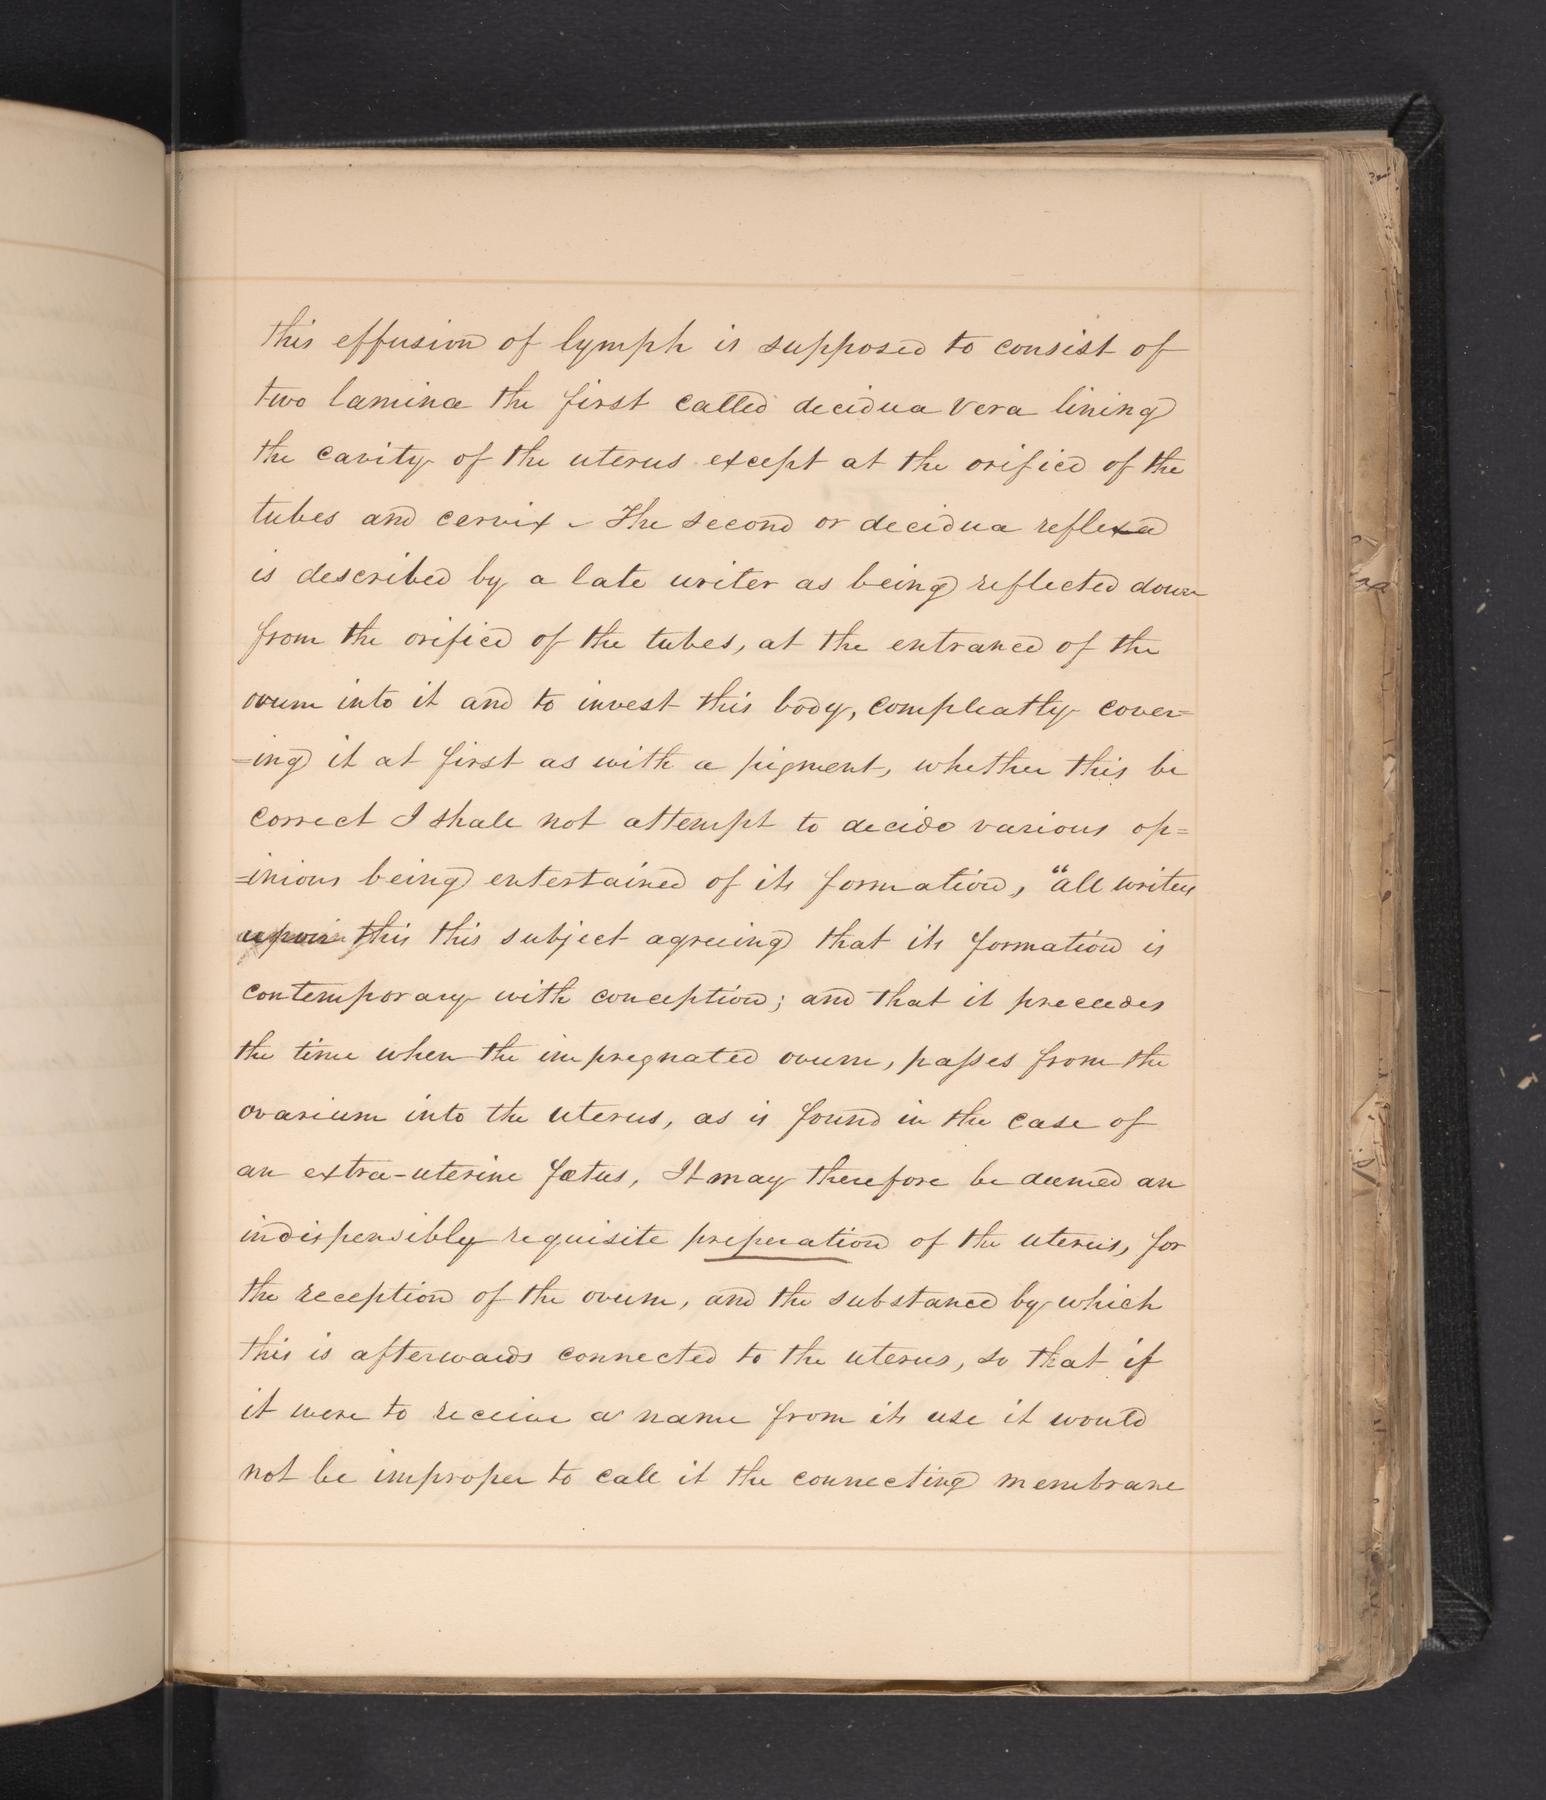 this effusion of lymph is supposed to consist of
two lamina the first called decidua vera lining
the cavity of the uterus except at the orifice of the
tubes and cervix - The second or decidua reflexa
is described by a late writer as being reflected down
from the orifice of the tubes, at the entrance of the
ovum into it and to invest this body, compleatly cover=
=ing it at first as with a pigment, whether this be
correct I shall not attempt to decide various op=
=inions being entertained of its formation, "all writers
upon this this subject agreeing that its formation is
contemporary with conception; and that it preceedes
the time when the impregnated ovum, passes from the
ovarium into the uterus, as is found in the case of
an extra-uterine fœtus, It may therefore be deemed an
indispensibly requisite preperation of the uterus, for
the reception of the ovum, and the substance by which
this is afterwards connected to the uterus, so that if
it were to receive a name from its use it would
not be improper to call it the connecting membrane